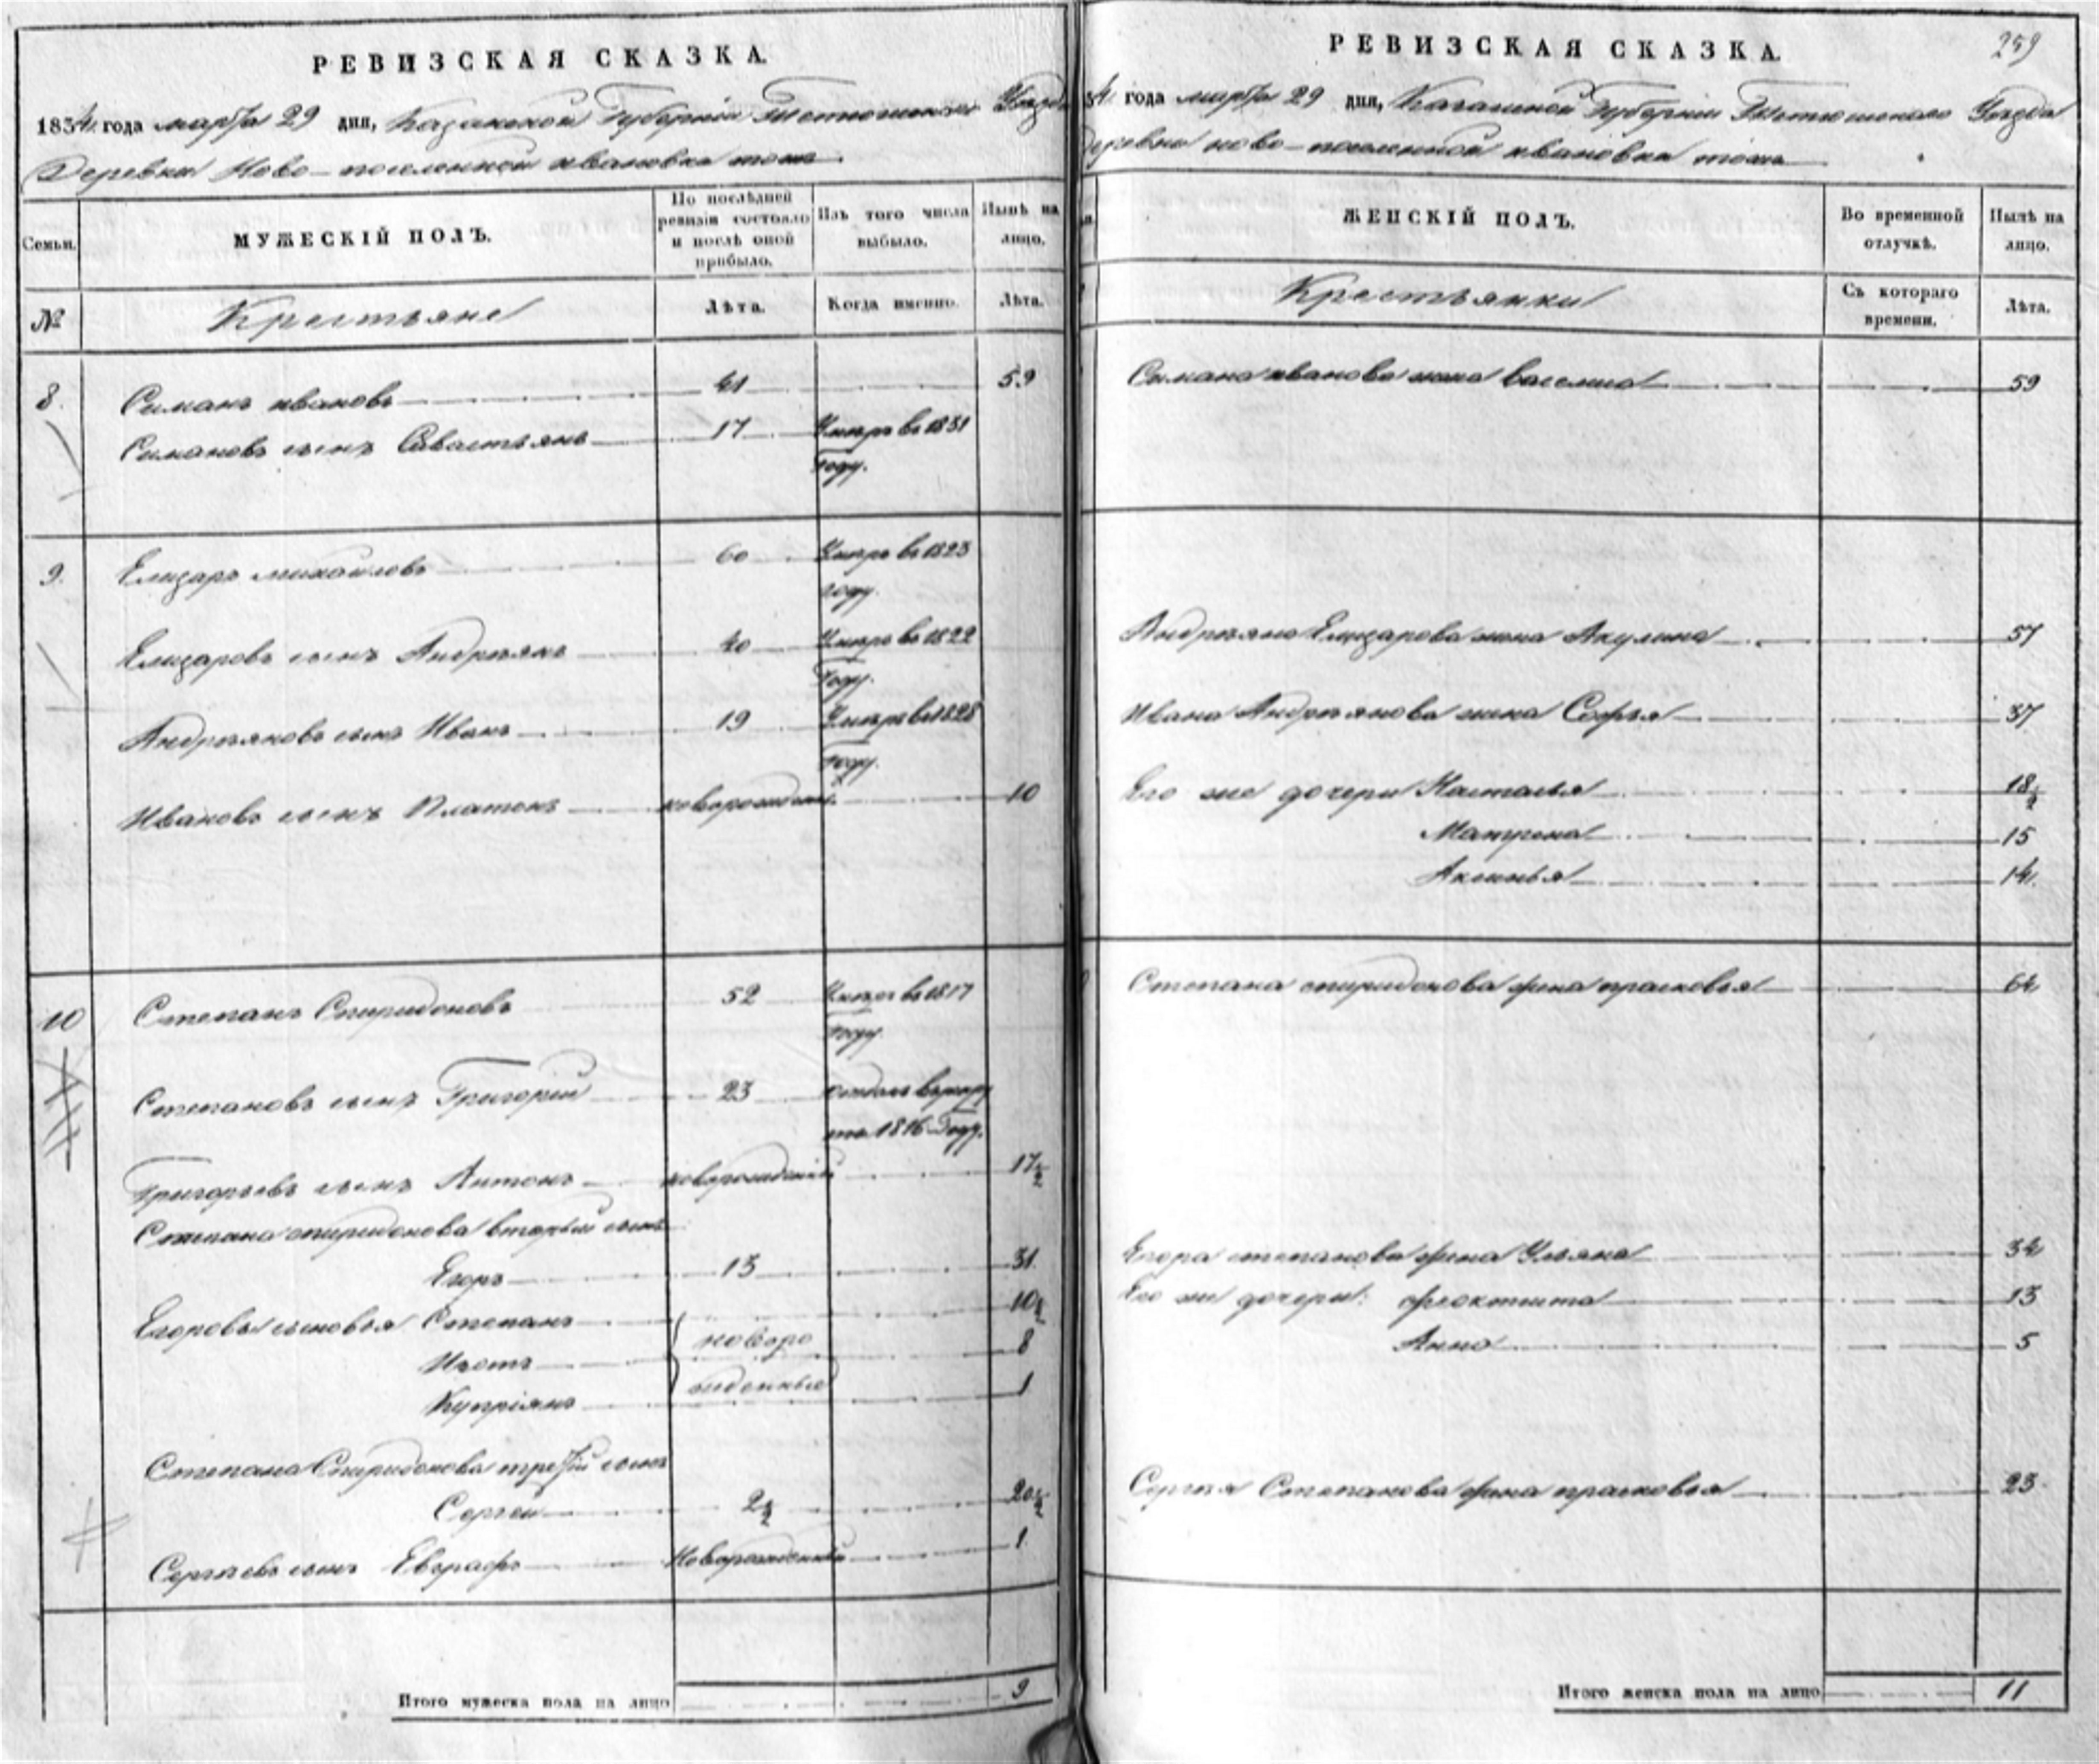 РЕВИЗСКАЯ СКАЗКА.
1834 года марта 29 дня, Казанской Губернии Тетюшскаго Уезда
Деревни Ново-поселенной Ивановка тожъ.
Семьи.
МУЖЕСКІЙ ПОЛЪ.
По послѣдней ревизіи состояло и послѣ оной прибыло.
Изъ того числа выбыло.
Нынѣ на лицо.
№
Крестьяне
Лѣта.
Когда именно.
Лѣта.
8. Симанъ ивановъ 41 59
Симановъ сынъ Савастьянъ 17 Умеръ в 1831
году.
9. Елизаръ михайловъ 60 Умеръ в 1823
году.
Елизаровъ сынъ Андреянъ 40 Умеръ в 1822
году.
Андреяновъ сынъ Иванъ 19 Умеръ в 1828
году.
Ивановъ сынъ Платонъ новорожден. 10
10 Степанъ Спиридоновъ 52 Умеръ в 1817
году.
Степановъ сынъ Григорій 23 отданъ в рекру
та 1816 году.
Григорьевъ сынъ Антонъ новорожденный 17 1/2
Степана спиридонова вторый сынъ
Егоръ 13 31
Егоровы сыновья Степанъ 10 1/2
Изотъ новоро 8
Купріянъ жденные 1
Степана Спиридонова третій сынъ
Сергеи 2 1/2 20 1/2
Сергеевъ сынъ Евграфъ Новорожденный 1
Итого мужеска пола на лицо 9
РЕВИЗСКАЯ СКАЗКА.
259
34 года марта 29 дня, Казанской Губерніи Тетюшскаго Уезда
деревни ново-поселенной ивановка тожъ
ЖЕНСКІЙ ПОЛЪ.
Во временной отлучкѣ.
Нынѣ на лицо.
Крестьянки
Съ котораго времени.
Лѣта.
Симана иванова жена василиса 59
Андреяна Елизарова жена Акулина 57
Ивана Андреянова жена Софья 37
Его же дочери Настасья 18 1/2
Матрена 15
Аксинья 14
Степана спиридонова жена прасковья 64
Егора степанова жена Ульяна 34
Его же дочери: феоктиста 13
Анна 5
Сергея Степанова жена прасковья 23
Итого женска пола на лицо 11